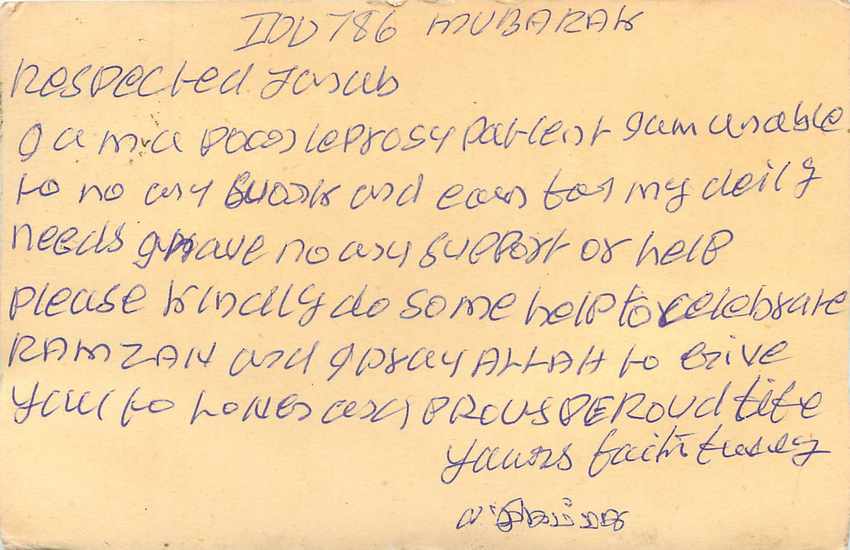 IDD 786 MUBARAK
Respected
I am a poor leprosy patient I am unable
to no any work and earn for my deily
needs I have no any support or help
please kindly do some help to celebrate
RAMZAN and I pray ALLAH to give
you to and PROUSPEROUD life
yours faithfully